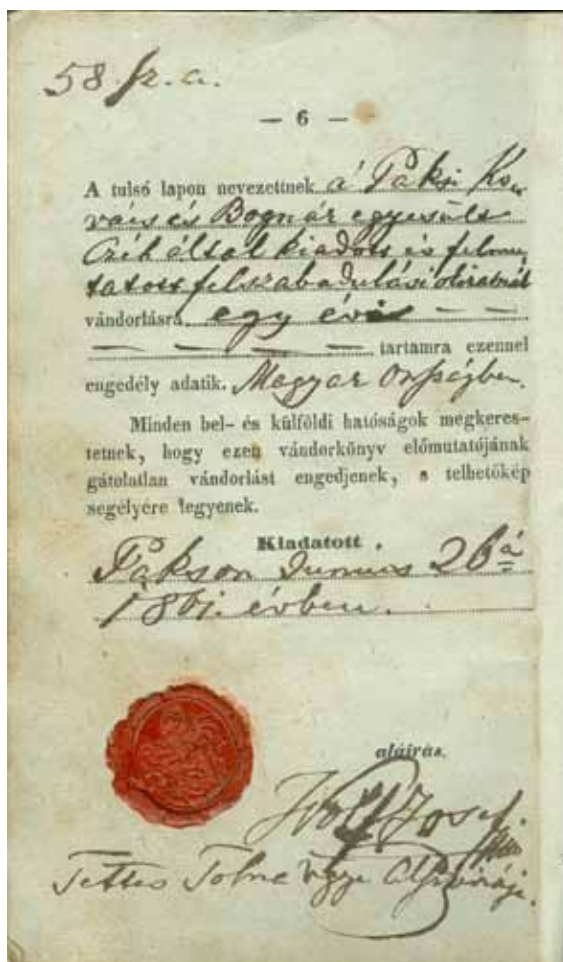 58. sz. a.
— 6 —
A tulsó lapon nevezettnek a Paksi Ko-
vács és Bognár egyesült
Czéh által kiadott és felmu-
tatott felszabadulási
vándorlásra egy évi — —
— — — — — tartamra ezennel
engedély adatik. Magyar Országben.
Minden bel- és külföldi hatóságok megkeres-
tetnek, hogy ezen vándorkönyv előmutatójának
gátolatlan vándorlást engedjenek, s telhetőkép
segélyére legyenek.
Kiadatott
Pakson Junius 26á
1861. évben.
aláírás.
József
Tettes Tolna